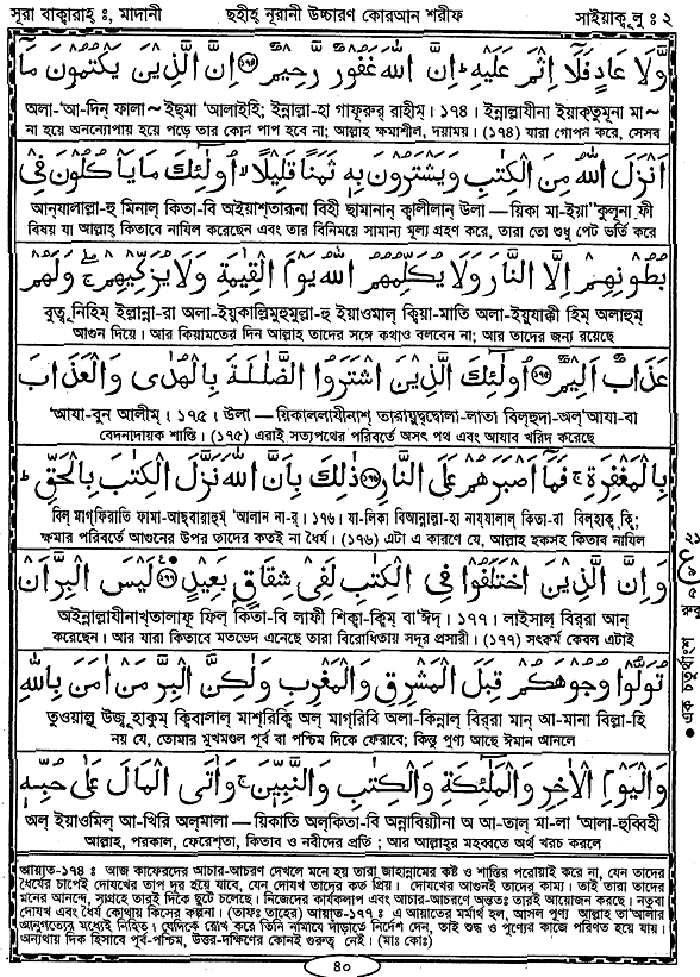 সূরা বাক্বারাহ্ ঃ, মাদানী ছহীহ্ নূরানী উচ্চারণ কোরআন শরীফ সাইয়াক্বূ লু ঃ ২
وَّلَا عَادٍ فَلَآ اِثْمَ عَلَيْهِ ؕ اِنَّ اللّٰهَ غَفُوْرٌ رَّحِيْمٌ ۝۱۷۴ اِنَّ الَّذِيْنَ يَكْتُمُوْنَ مَآ
অলা-‘আ-দিন্ ফালা ~ ইছমা ‘আলাইহি; ইন্নাল্লা-হা গাফূরুর্ রাহীম্। ১৭৪। ইন্নাল্লাযীনা ইয়াক্তুমূনা মা ~
না হয়ে অনন্যোপায় হয়ে পড়ে তার কোন পাপ হবে না; আল্লাহ্ ক্ষমাশীল, দয়াময়। (১৭৪) যারা গোপন করে, সেসব
اَنْزَلَ اللّٰهُ مِنَ الْكِتٰبِ وَيَشْتَرُوْنَ بِهٖ ثَمَنًا قَلِيْلًا ۙ اُولٰٓئِكَ مَا يَاْكُلُوْنَ فِيْ
আন্‌যালাল্লা-হু মিনাল্ কিতা-বি অইয়াশ্‌তারূনা বিহী ছামানান্ ক্বালীলান্ উলা — য়িকা মা-ইয়া’কুলূনা ফী
বিষয় যা আল্লাহ্ কিতাবে নাযিল করেছেন এবং তার বিনিময়ে সামান্য মূল্য গ্রহণ করে, তারা তো শুধু পেট ভর্তি করে
بُطُوْنِهِمْ اِلَّا النَّارَ وَلَا يُكَلِّمُهُمُ اللّٰهُ يَوْمَ الْقِيٰمَةِ وَلَا يُزَكِّيْهِمْ ۚ وَلَهُمْ
বুত্বূ নিহিম্ ইল্লান্না-রা অলা-ইয়ুকাল্লিমুহুমুল্লা-হু ইয়াওমাল্ ক্বিয়া-মাতি অলা-ইয়ুযাক্কী হিম্ অলাহুম্
আগুন দিয়ে। আর কিয়ামতের দিন আল্লাহ্ তাদের সঙ্গে কথাও বলবেন না; আর তাদের জন্য রয়েছে
عَذَابٌ اَلِيْمٌ ۝۱۷۵ اُولٰٓئِكَ الَّذِيْنَ اشْتَرَوُا الضَّلٰلَةَ بِالْهُدٰى وَالْعَذَابَ
‘আযা-বুন আলীম্। ১৭৫। উলা — য়িকাল্লাযীনাশ্ তারায়ুদ্দ্বোলা-লাতা বিল্‌হুদা-অল্‘আযা-বা
বেদনাদায়ক শাস্তি। (১৭৫) এরাই সত্যপথের পরিবর্তে অসৎ পথ এবং আযাব খরিদ করেছে
بِالْمَغْفِرَةِ ۚ فَمَآ اَصْبَرَهُمْ عَلَى النَّارِ ۝۱۷۶ ذٰلِكَ بِاَنَّ اللّٰهَ نَزَّلَ الْكِتٰبَ بِالْحَقِّ ؕ
বিল্ মাগ্‌ফিরাতি ফামা-আছ্‌বারাহুম্ ‘আলান না-র্। ১৭৬। যা-লিকা বিআন্নাল্লা-হা নায্‌যালাল্ কিতা-বা বিল্‌হাক্ব ক্বি;
ক্ষমার পরিবর্তে আগুনের উপর তাদের কতই না ধৈর্য। (১৭৬) এটা এ কারণে যে, আল্লাহ্ হকসহ কিতাব নাযিল
وَاِنَّ الَّذِيْنَ اخْتَلَفُوْا فِي الْكِتٰبِ لَفِيْ شِقَاقٍۭ بَعِيْدٍ ۝۱۷۷ لَيْسَ الْبِرَّ اَنْ
অইন্নাল্লাযীনাখ্‌তালাফূ ফিল্ কিতা-বি লাফী শিক্বা-ক্বিম্ বা‘ঈদ্। ১৭৭। লাইসাল্ বির্‌রা আন্
করেছেন। আর যারা কিতাবে মতভেদ এনেছে তারা বিরোধিতায় সুদূর প্রসারী। (১৭৭) সৎকর্ম কেবল এটাই
تُوَلُّوْا وُجُوْهَكُمْ قِبَلَ الْمَشْرِقِ وَالْمَغْرِبِ وَلٰكِنَّ الْبِرَّ مَنْ اٰمَنَ بِاللّٰهِ
তুওয়াল্লূ উজূ হাকুম্ ক্বিবালাল্ মাশ্‌রিক্বি অল্ মাগ্‌রিবি অলা-কিন্নাল্ বির্‌রা মান্ আ-মানা বিল্লা-হি
নয় যে, তোমার মুখমণ্ডল পূর্ব বা পশ্চিম দিকে ফেরাবে; কিন্তু পুণ্য আছে ঈমান আনলে
وَالْيَوْمِ الْاٰخِرِ وَالْمَلٰٓئِكَةِ وَالْكِتٰبِ وَالنَّبِيّٖنَ ۚ وَاٰتَى الْمَالَ عَلٰى حُبِّهٖ
অল্ ইয়াওমিল্ আ-খিরি অল্‌মালা — য়িকাতি অল্‌কিতা-বি অন্নাবিয়ীনা অ আ-তাল্ মা-লা ‘আলা-হুব্বিহী
আল্লাহ, পরকাল, ফেরেশতা, কিতাব ও নবীদের প্রতি ; আর আল্লাহর মহব্বতে অর্থ খরচ করলে
আয়াত-১৭৪ ঃ আজ কাফেরদের আচার-আচরণ দেখলে মনে হয় তারা জাহান্নামের কষ্ট ও শাস্তির পরোয়াই করে না, যেন তাদের
ধৈর্যের চাপেই দোযখের তাপ দূর হয়ে যাবে, যেন দোযখ তাদের কত প্রিয়। দোযখের আগুনই তাদের কাম্য। তাই তারা তাদের
মনের আনন্দে, সাগ্রহে তারই দিকে ছুটে চলেছে। নিজেদের কার্যকলাপ এবং আচার-আচরণে অন্ততঃ তারই আয়োজন করছে। নতুবা
দোযখ এবং ধৈর্য কোথায় কিসের কল্পনা। (তাফঃ তাহের) আয়াত-১৭৭ ঃ এ আয়াতের মর্মার্থ হল, আসল পুণ্য আল্লাহ তা‘আলার
আনুগত্যের মধ্যেই নিহিত। যেদিকে রোখ করে তিনি নামাযে দাঁড়াতে নির্দেশ দেন, তাই শুদ্ধ ও পুণ্যের কাজে পরিণত হয়ে যায়।
অন্যথায় দিক হিসাবে পূর্ব-পশ্চিম, উত্তর-দক্ষিণের কোনই গুরুত্ব নেই। (মাঃ কোঃ)
৪০
২১
ع
৫
রুকু
● এক চতুর্থাংশ